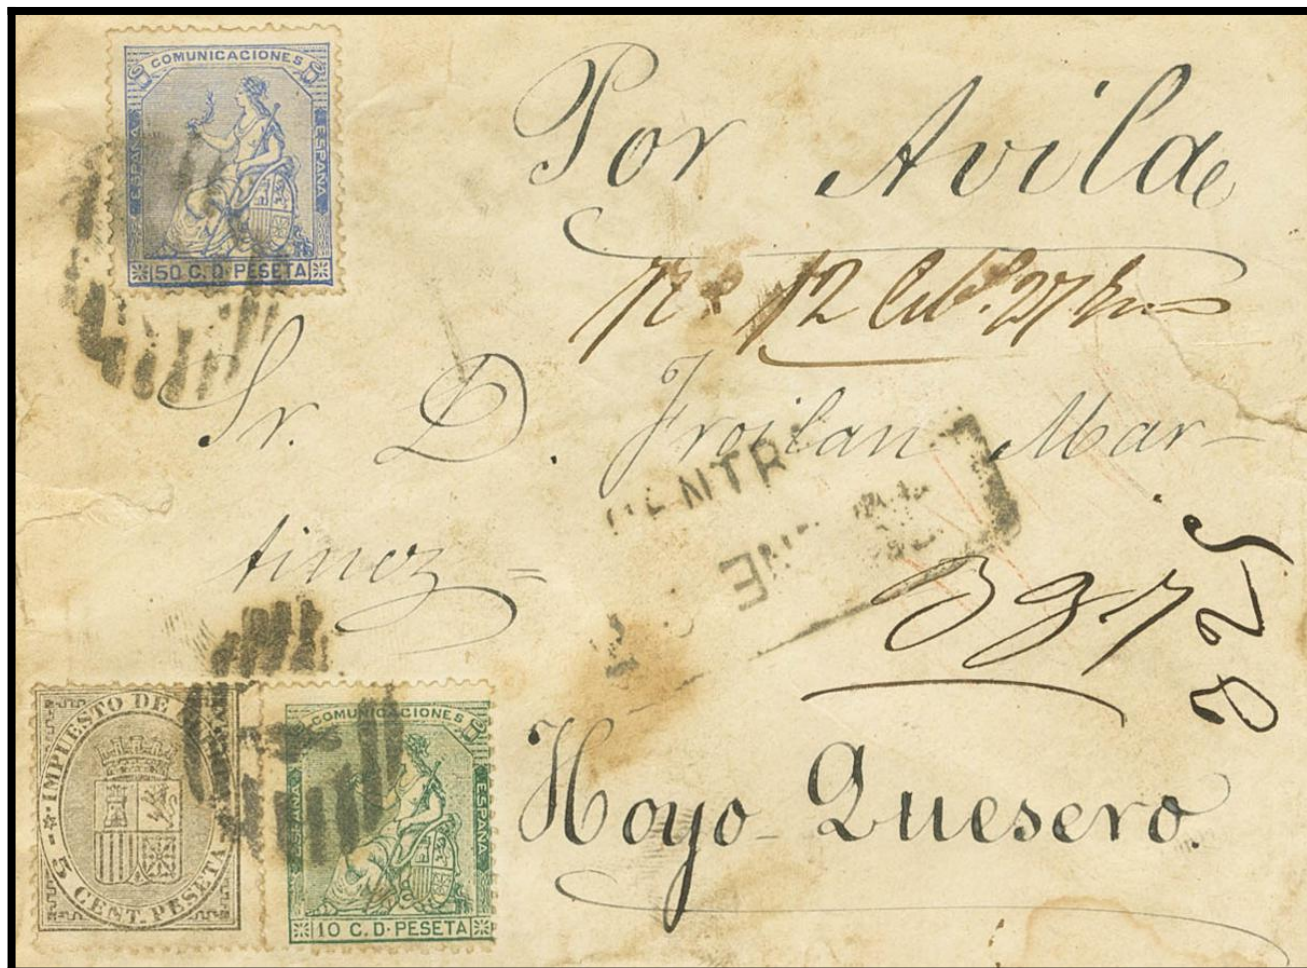 COMUNICACIONES
ESPAÑA
ESPAÑA
50 C. D. PESETA
Por Avila
12
Sr. D. Froilan Mar-
tinez =
825
Hoyo-Quesero.
IMPUESTO DE
5 CENT. PESETA
COMUNICACIONES
ESPAÑA
ESPAÑA
10 C. D. PESETA